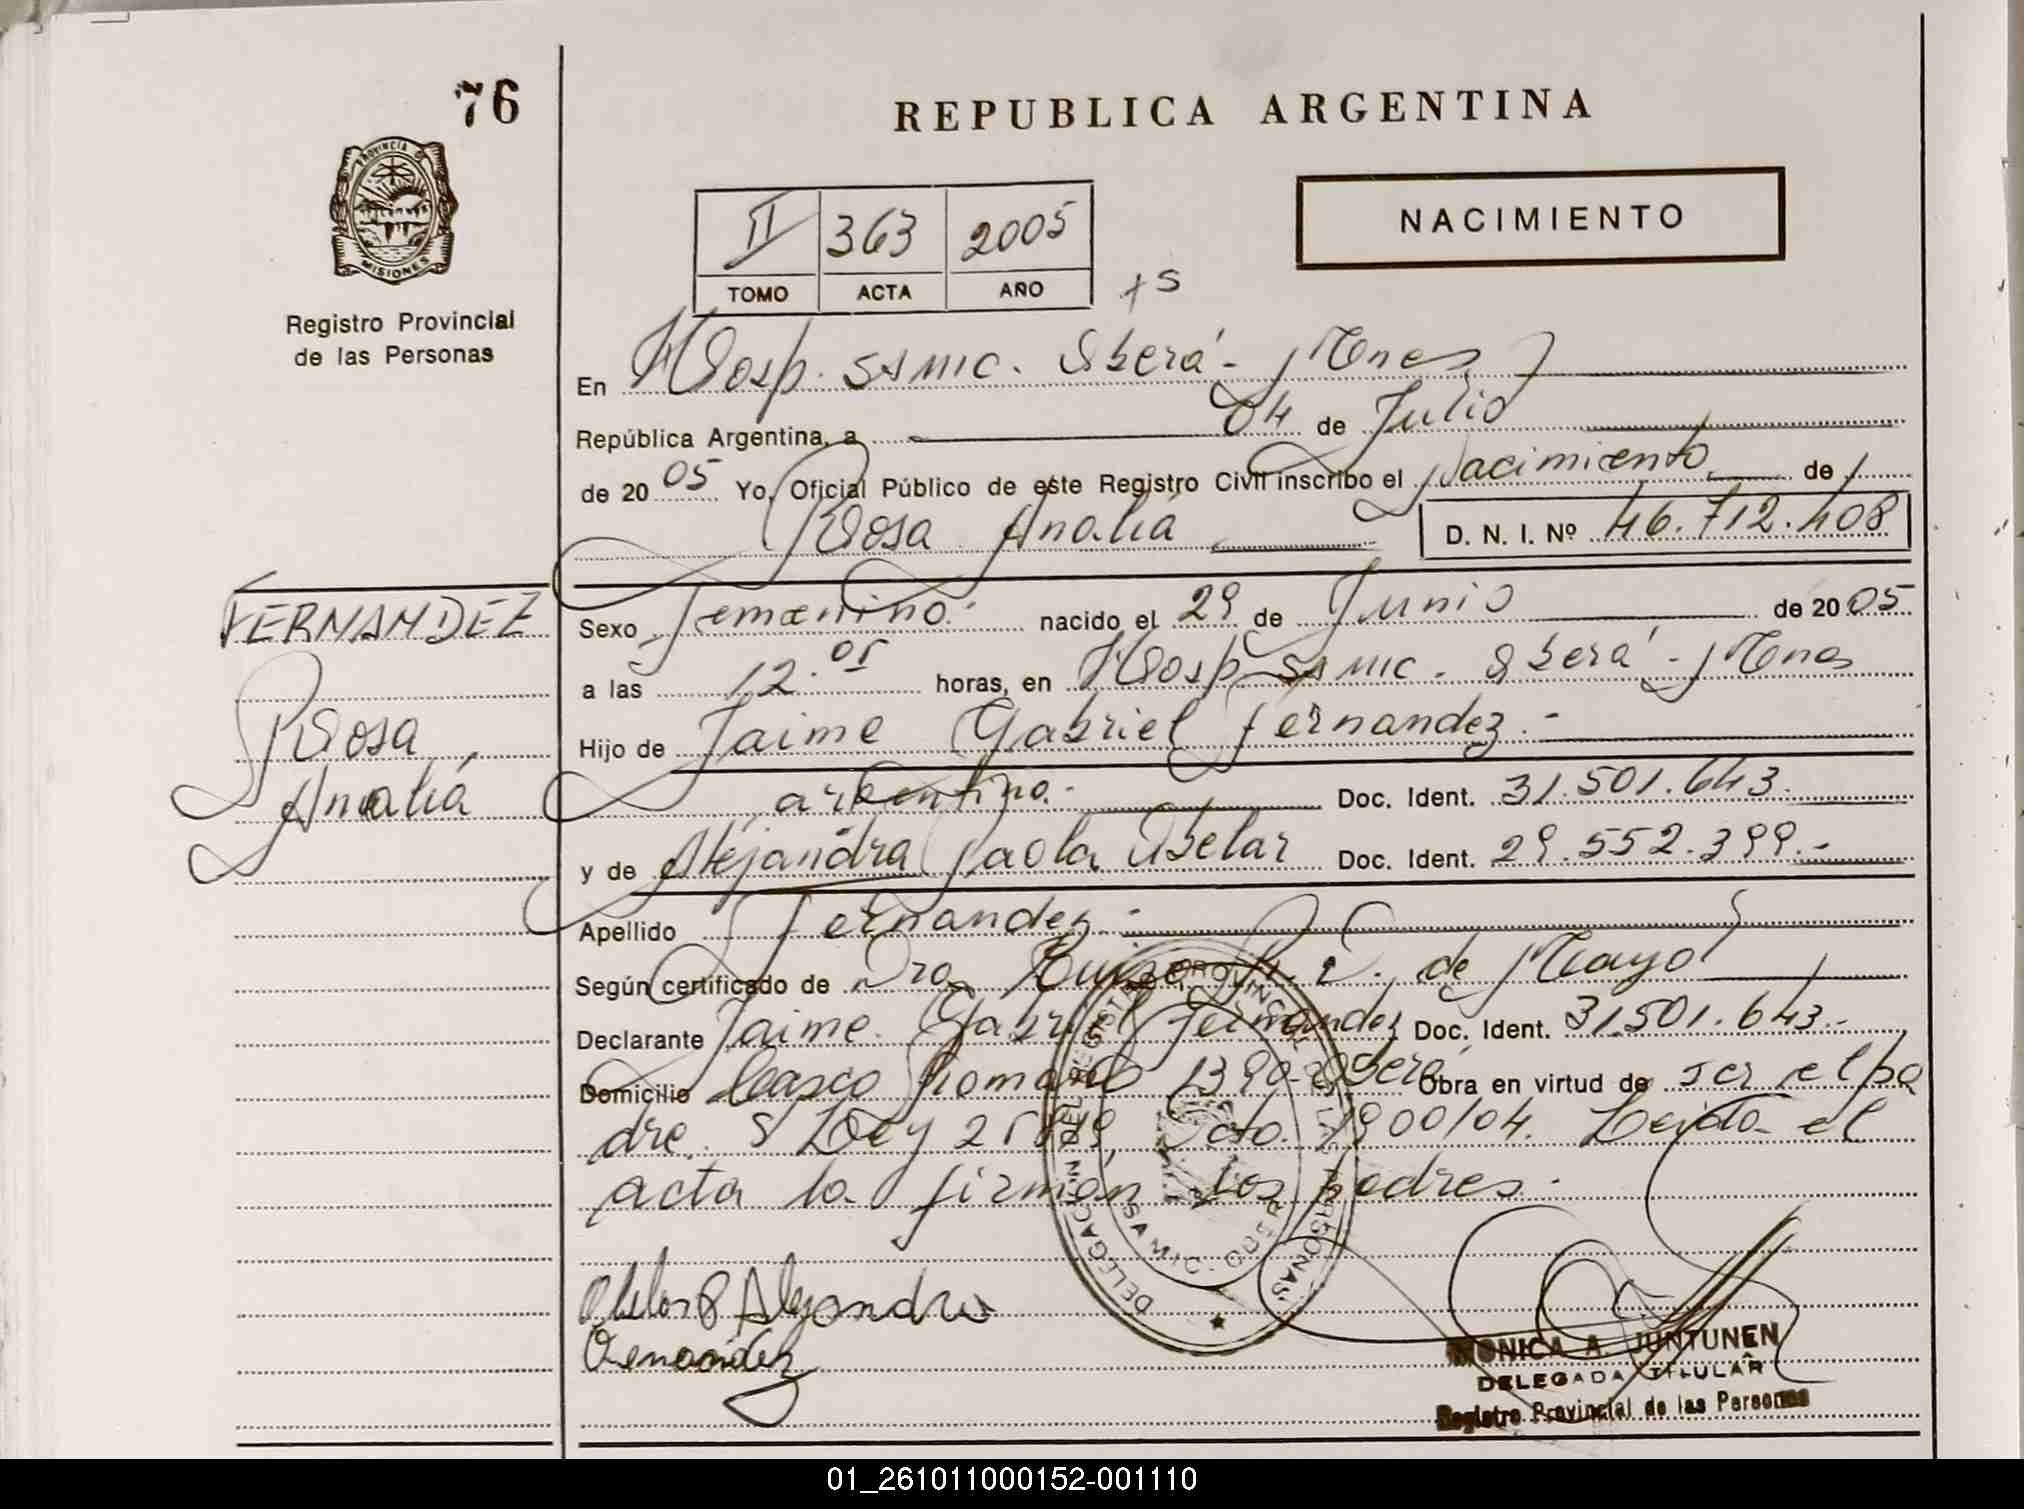 76
REPUBLICA ARGENTINA
PROVINCIA DE
MISIONES
Registro Provincial
de las Personas
II 363 2005
TOMO ACTA AÑO
NACIMIENTO
+s
En Hosp. SAMIC. Oberá - Mnes
República Argentina, a 04 de Julio
de 2005 Yo, Oficial Público de este Registro Civil inscribo el Nacimiento de
Rosa Analía D. N. I. Nº 46.712.408
FERNANDEZ
Rosa
Analía
Sexo Femenino. nacido el 29 de Junio de 2005
a las 12.05 horas, en Hosp SAMIC. Oberá - Mnes
Hijo de Jaime Gabriel Fernandez.-
argentino.- Doc. Ident. 31.501.643.
y de Alejandra Paola Obelar Doc. Ident. 29.552.399.-
Apellido Fernandez.-
Según certificado de Dra. D. de Mayo
Declarante Jaime Gabriel Fernandez Doc. Ident. 31.501.643.-
Domicilio Casco Romano 1390-Oberá Obra en virtud de ser el pa
dre. S/Ley 25819 Dcto. 1900/04. Leída el
acta la firman los padres.-
DELEGACION DEL REGISTRO PROVINCIAL DE LAS PERSONAS
SAMIC
Obelar P Alejandra
MONICA A. JUNTUNEN
DELEGADA TITULAR
Registro Provincial de las Personas
01_261011000152-001110